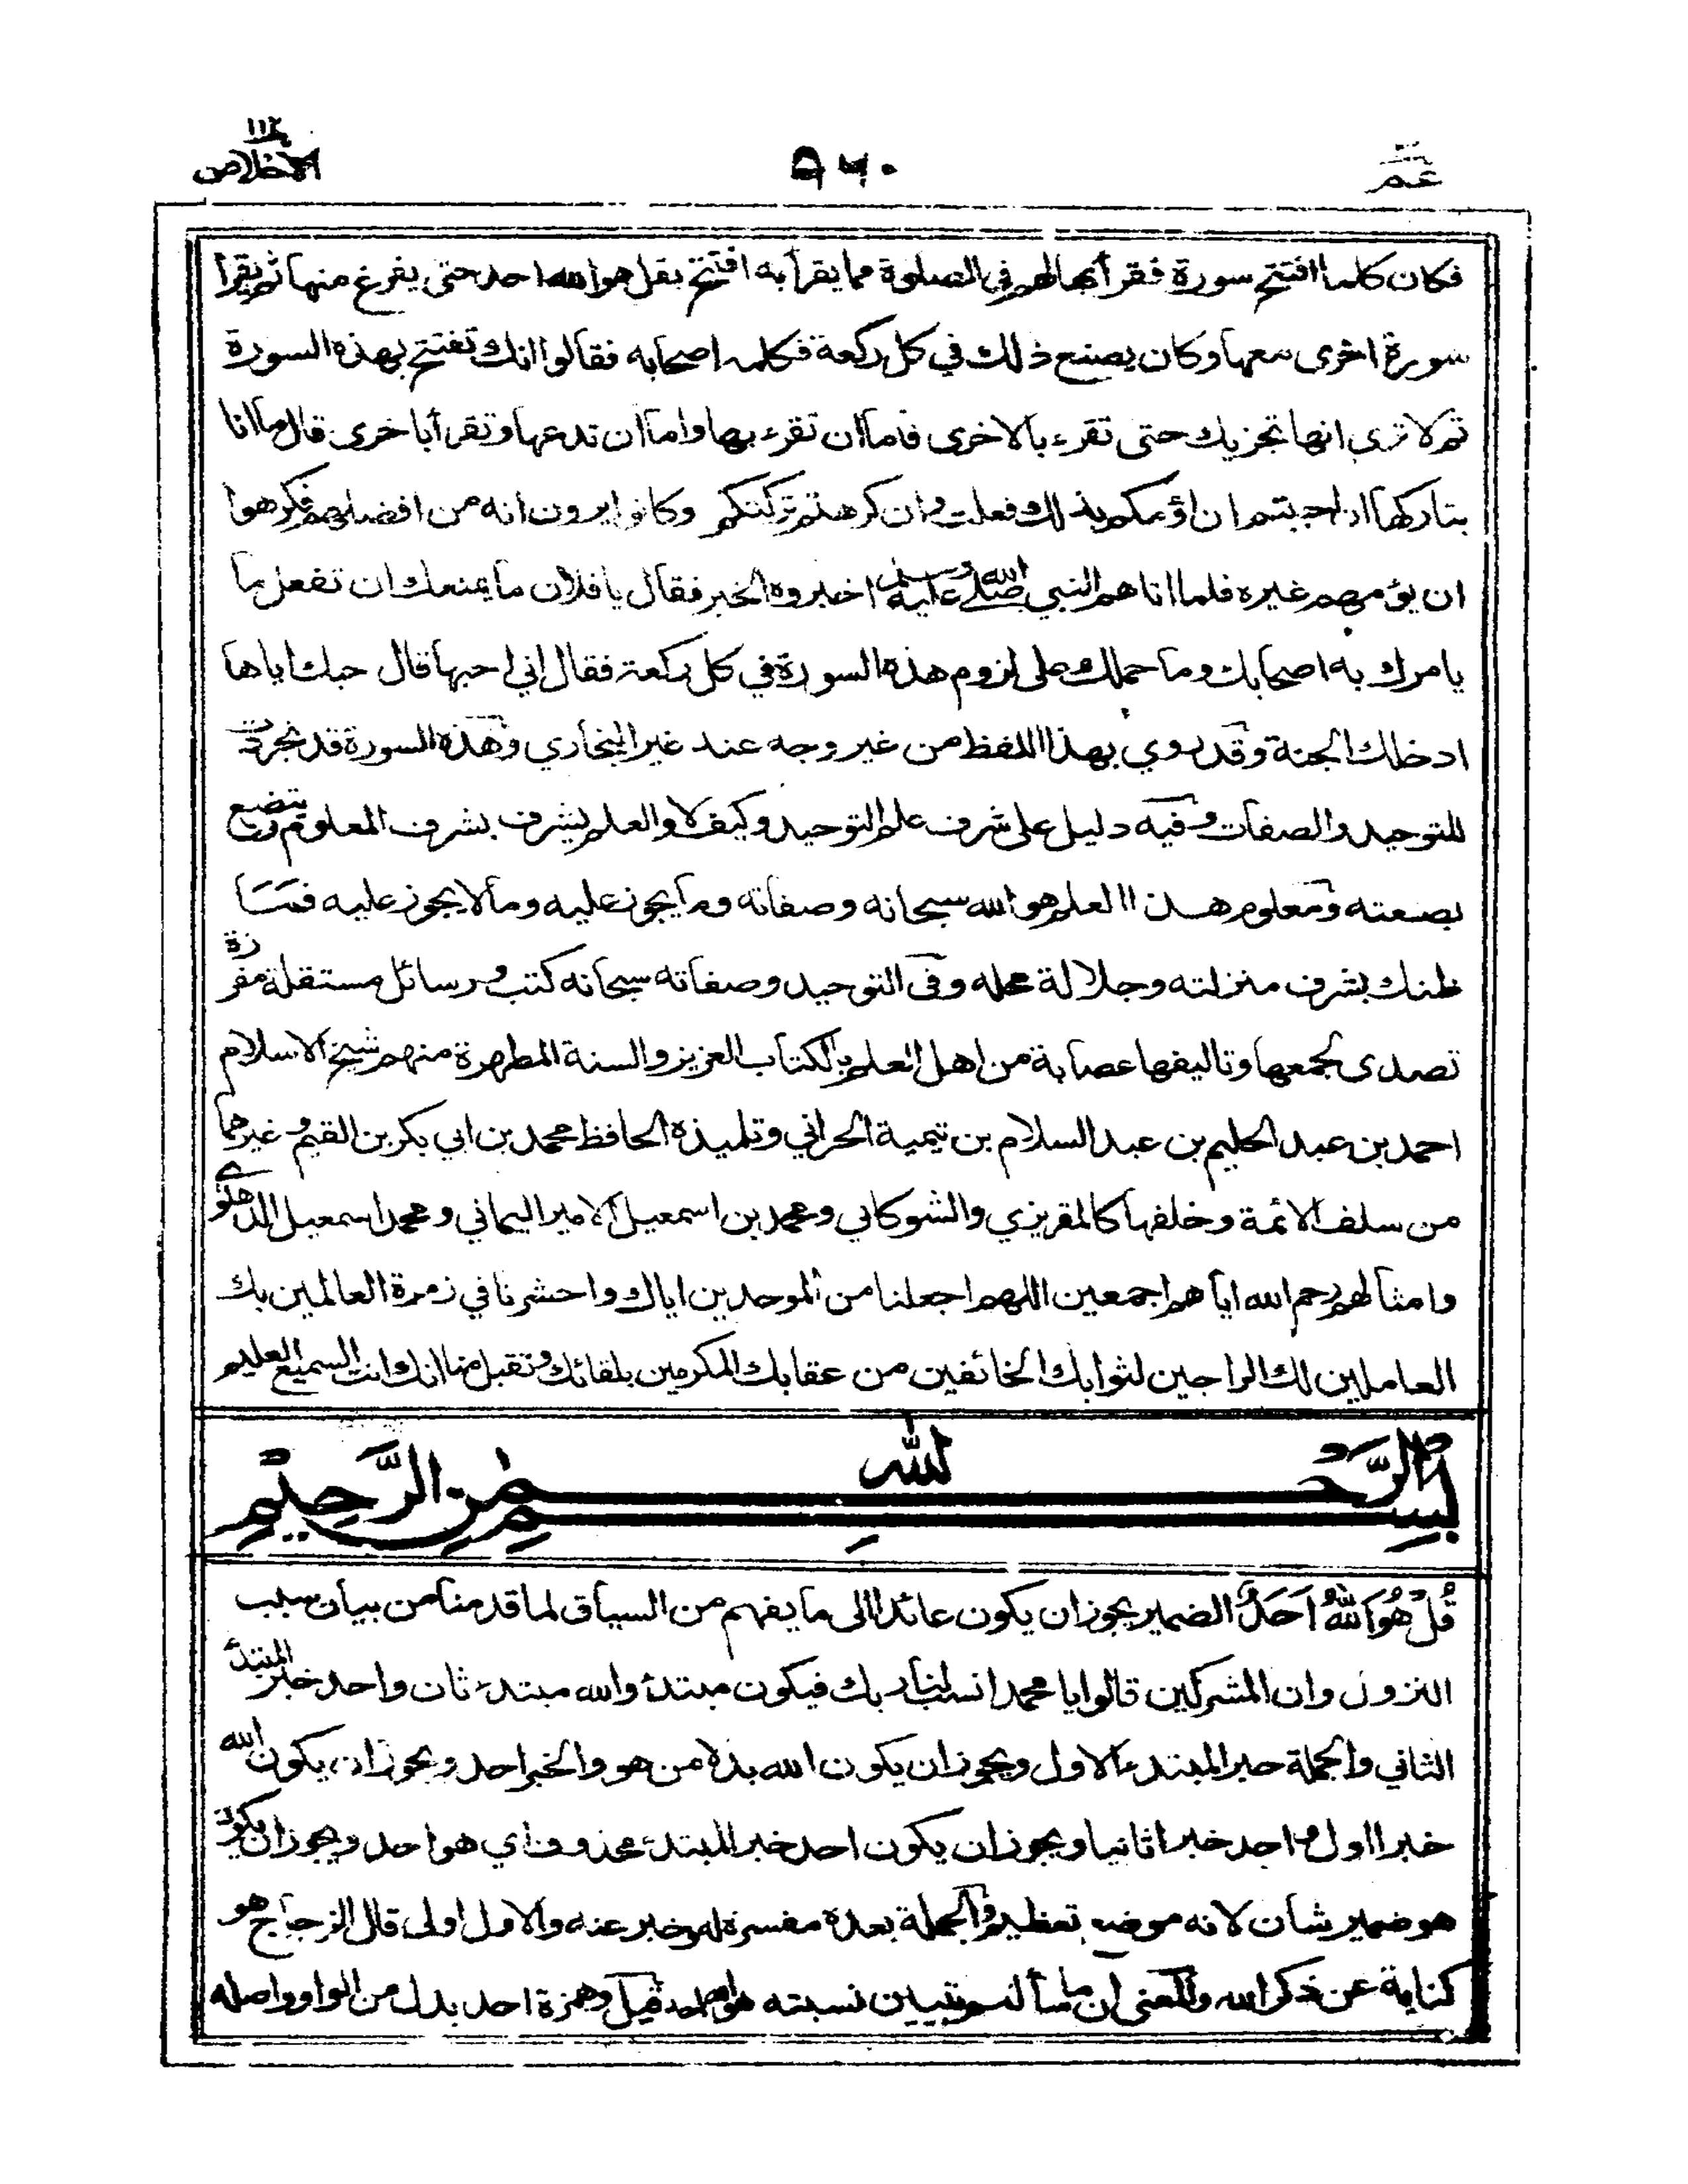 عم
٥٦٠
١١٢
الاخلاص
فكان كلما افتتح سورة فقرأ بها لهم في الصلوة مما يقرأ به افتتح بقل هو الله احد حتى يفرغ منها ثم يقرأ
سورة اخرى معها وكان يصنع ذلك في كل ركعة فكلمه اصحابه فقالوا انك تفتتح بهذه السورة
ثم لا ترى انها تجزيك حتى تقرء بالاخرى فاما ان تقرء بها واما ان تدعها وتقرأ باخرى قال ما انا
بتاركها ان احببتم ان اؤمكم بذلك فعلت وان كرهتم تركتكم وكانوا يرون انه من افضلهم فكرهوا
ان يؤمهم غيره فلما اتاهم النبي صلى الله عليه وسلم اخبروه الخبر فقال يا فلان ما يمنعك ان تفعل ما
يامرك به اصحابك وما حملك على لزوم هذه السورة في كل ركعة فقال اني احبها قال حبك اياها
ادخلك الجنة وقد روي بهذا اللفظ من غير وجه عند غير البخاري وهذه السورة قد تجردت
للتوحيد والصفات وفيه دليل على شرف علم التوحيد وكيف لا والعلم يشرف بشرف المعلوم ويتضع
بضعته ومعلوم هذا العلم هو الله سبحانه وصفاته وما يجوز عليه وما لا يجوز عليه فما
ظنك بشرف منزلته وجلالة محله وفى التوحيد وصفاته سبحانه كتب ورسائل مستقلة مفرزة
تصدى لجمعها وتاليفها عصابة من اهل العلم بالكتاب العزيز والسنة المطهرة منهم شيخ الاسلام
احمد بن عبد الحليم بن عبد السلام بن تيمية الحراني وتلميذه الحافظ محمد بن ابي بكر بن القيم وغيرهما
من سلف الائمة وخلفها كالمقريزي والشوكاني ومحمد بن اسمعيل الامير اليماني ومحمد اسمعيل الدهلوي
وامثالهم رحم الله اياهم اجمعين اللهم اجعلنا من الموحدين اياك واحشرنا في زمرة العالمين بك
العاملين لك الراجين لثوابك الخائفين من عقابك المكرمين بلقائك وتقبل منا انك وانت السميع العليم
بسم الله الرحمن الرحيم
قُلْ هُوَ اللهُ اَحَدٌ الضمير يجوز ان يكون عائدا الى ما يفهم من السياق لما قدمنا من بيان سبب
النزول وان المشركين قالوا يا محمد انسب لنا ربك فيكون مبتدأ والله مبتدء ثان واحد خبر المبتدأ
الثاني والجملة خبر المبتدء الاول ويجوز ان يكون الله بدلا من هو والخبر احد ويجوز ان يكون الله
خبرا اول واحد خبرا ثانيا ويجوز ان يكون احد خبر المبتدء محذوف اي هو احد ويجوز ان يكون
هو ضمير شان لانه موضع تعظيم والجملة بعده مفسرة له وخبر عنه والاول اولى قال الزجاج هو
كناية عن ذكر الله والمعنى ان ما سألتم تبيين نسبته هو الله احد قيل وهمزة احد بدل من الواو واصله